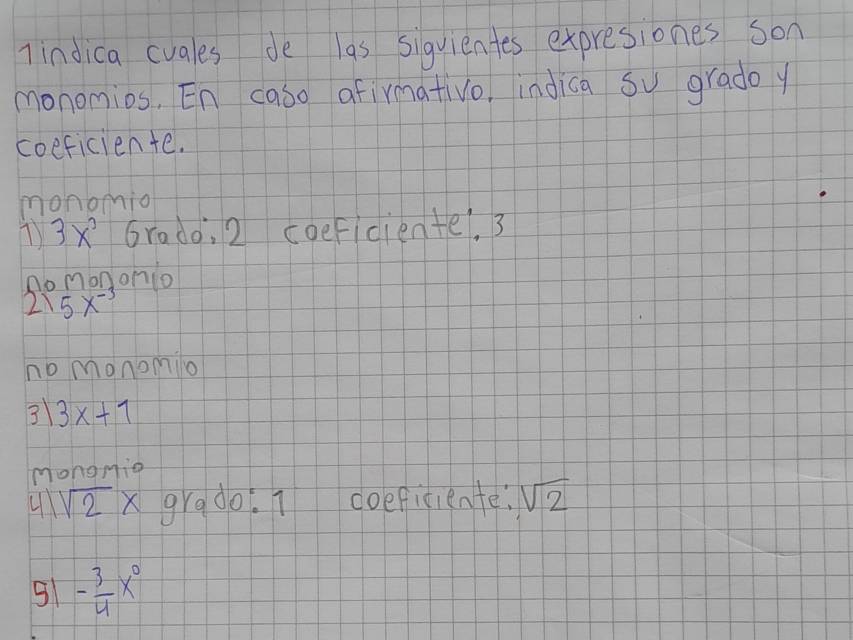 1 indica cuales de las siguientes expresiones son
monomios. En caso afirmativo, indica su grado y
coeficiente.
monomio
1) 3x³ Grado: 2 coeficiente: 3
no monomio
2) 5x⁻³
no monomio
3) 3x+1
monomio
4) √2 x grado: 1 coeficiente: √2
5) -3/4 x⁰